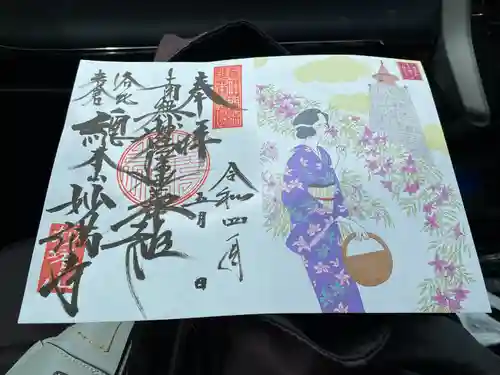 奉拝
令和四年
五月 日
南無妙法蓮華経
洛北
岩倉
總本山妙満寺